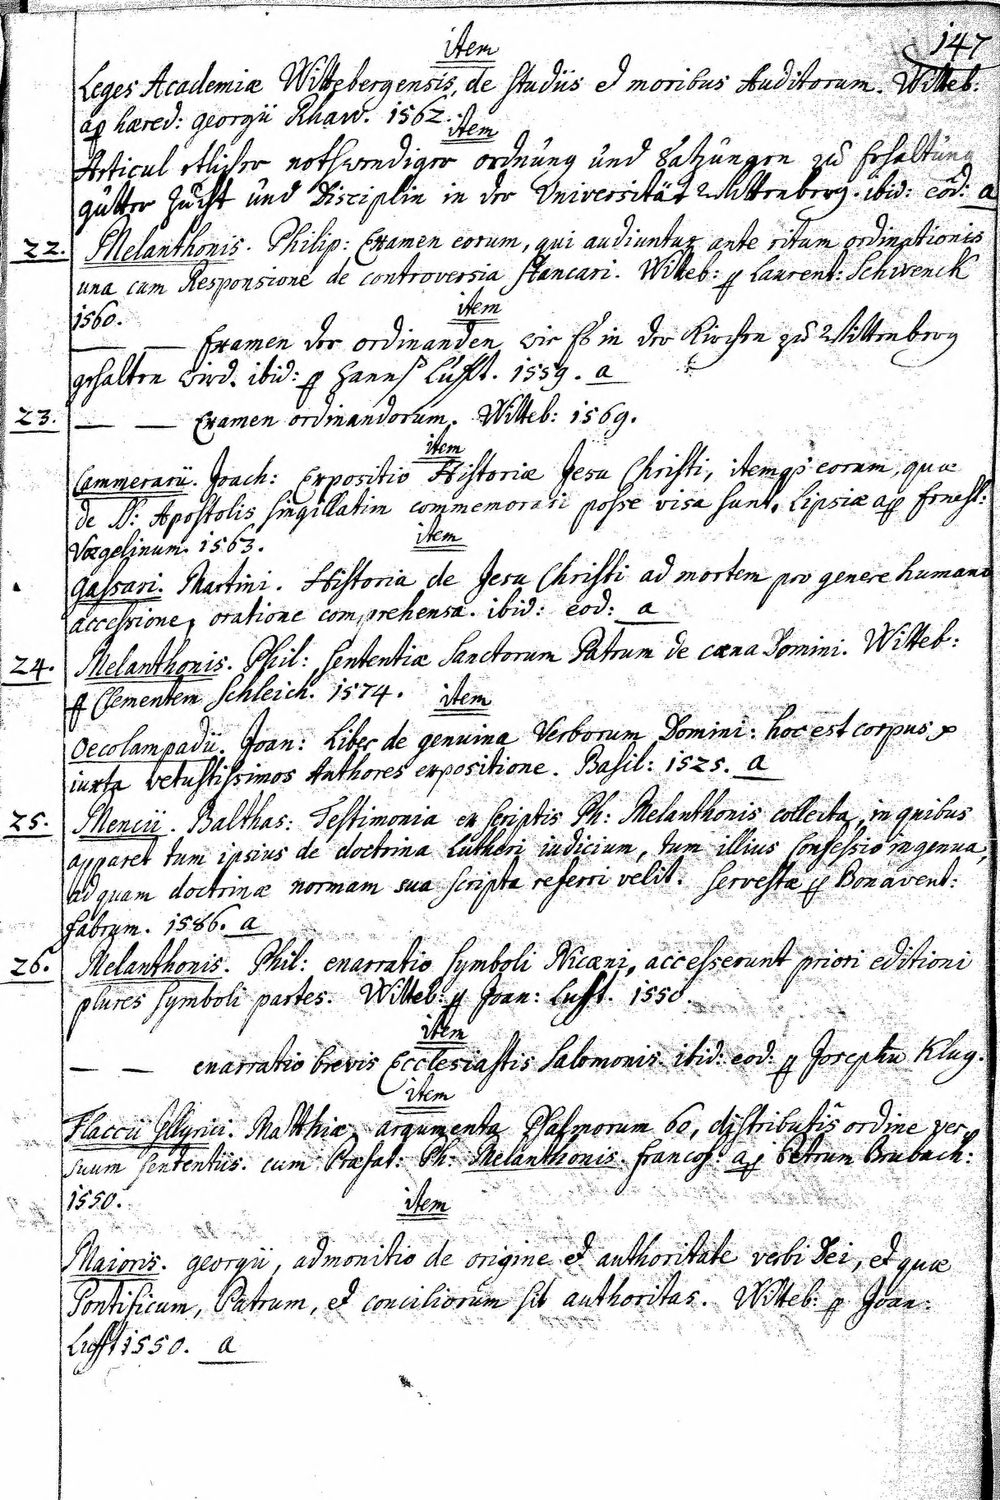 147
item
Leges Academiæ Wittebergensis, de studiis et moribus Auditorum. Witteb:
ap hæred: georgii Rhaw. 1562.
item
Articul etlicher nothwendiger ordnung und Satzungen zu Erhaltung
gutter Zucht und Disciplin in der Universität Wittenberg. ibid: eod: a
22. Melanthonis. Philip: Examen eorum, qui audiuntur ante ritum ordinationis
una cum Responsione de controversia stancari. Witteb: p Laurent: Schwenck
1560.
item
— — Examen der ordinanden wie Es in der Kirchen zu Wittenberg
gehalten wird. ibid: p Hannß Lufft. 1559. a
23. — — Examen ordinandorum. Witteb: 1569.
item
Cammerarii. Joach: Expositio Historiæ Jesu Christi, itemq eorum, quæ
de D: Apostolis singillatim commemorari posse visa sunt. Lipsiæ ap Ernest:
Vœgelinum. 1563.
item
Gassari. Martini. Historia de Jesu Christi ad mortem pro genere humano
accessione, oratione comprehensa. ibid: eod: a
24. Melanthonis. Phil: sententiæ Sanctorum Patrum de cœna Domini. Witteb:
p Clementem Schleich. 1574.
item
Oecolampadii. Joan: Liber de genuina Verborum Domini: hoc est corpus
iuxta vetustissimos Authores expositione. Basil: 1525. a
25. Mencii. Balthas: Testimonia ex scriptis Ph: Melanthonis collecta, in quibus
apparet tum ipsius de doctrina Lutheri iudicium, tum illius confessio ingenua,
ad quam doctrinæ normam sua scripta referri velit. Servestæ p Bonavent:
Fabrum. 1586. a
26. Melanthonis. Phil: enarratio symboli Nicæni, accesserunt priori editioni
plures symboli partes. Witteb: p Joan: Lufft. 1550.
item
— — enarratio brevis Ecclesiastis Salomonis ibid: eod: p Josephu Klug.
item
Flaccii Illyrici. Matthiæ, argumenta Psalmorum 60, distributis ordine ver,
suum sententiis. cum Præfat: Ph: Melanthonis. francof: ap Petrum Brubach:
1550.
item
Maioris. georgii, admonitio de origine et authoritate verbi Dei, et quæ
Pontificum, Patrum, et conciliorum sit authoritas. Witteb: p Joan:
Lufft 1550. a